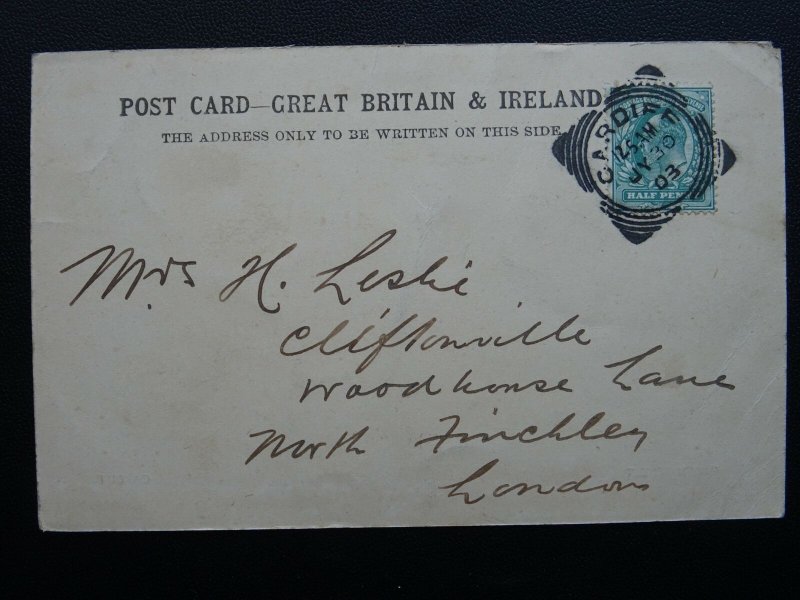 POST CARD—GREAT BRITAIN & IRELAND
THE ADDRESS ONLY TO BE WRITTEN ON THIS SIDE.
CARDIFF
12.15 AM
JY 30
03
HALF PEN
Mrs H. Leslie
Cliftonville
Woodhouse Lane
North Finchley
London